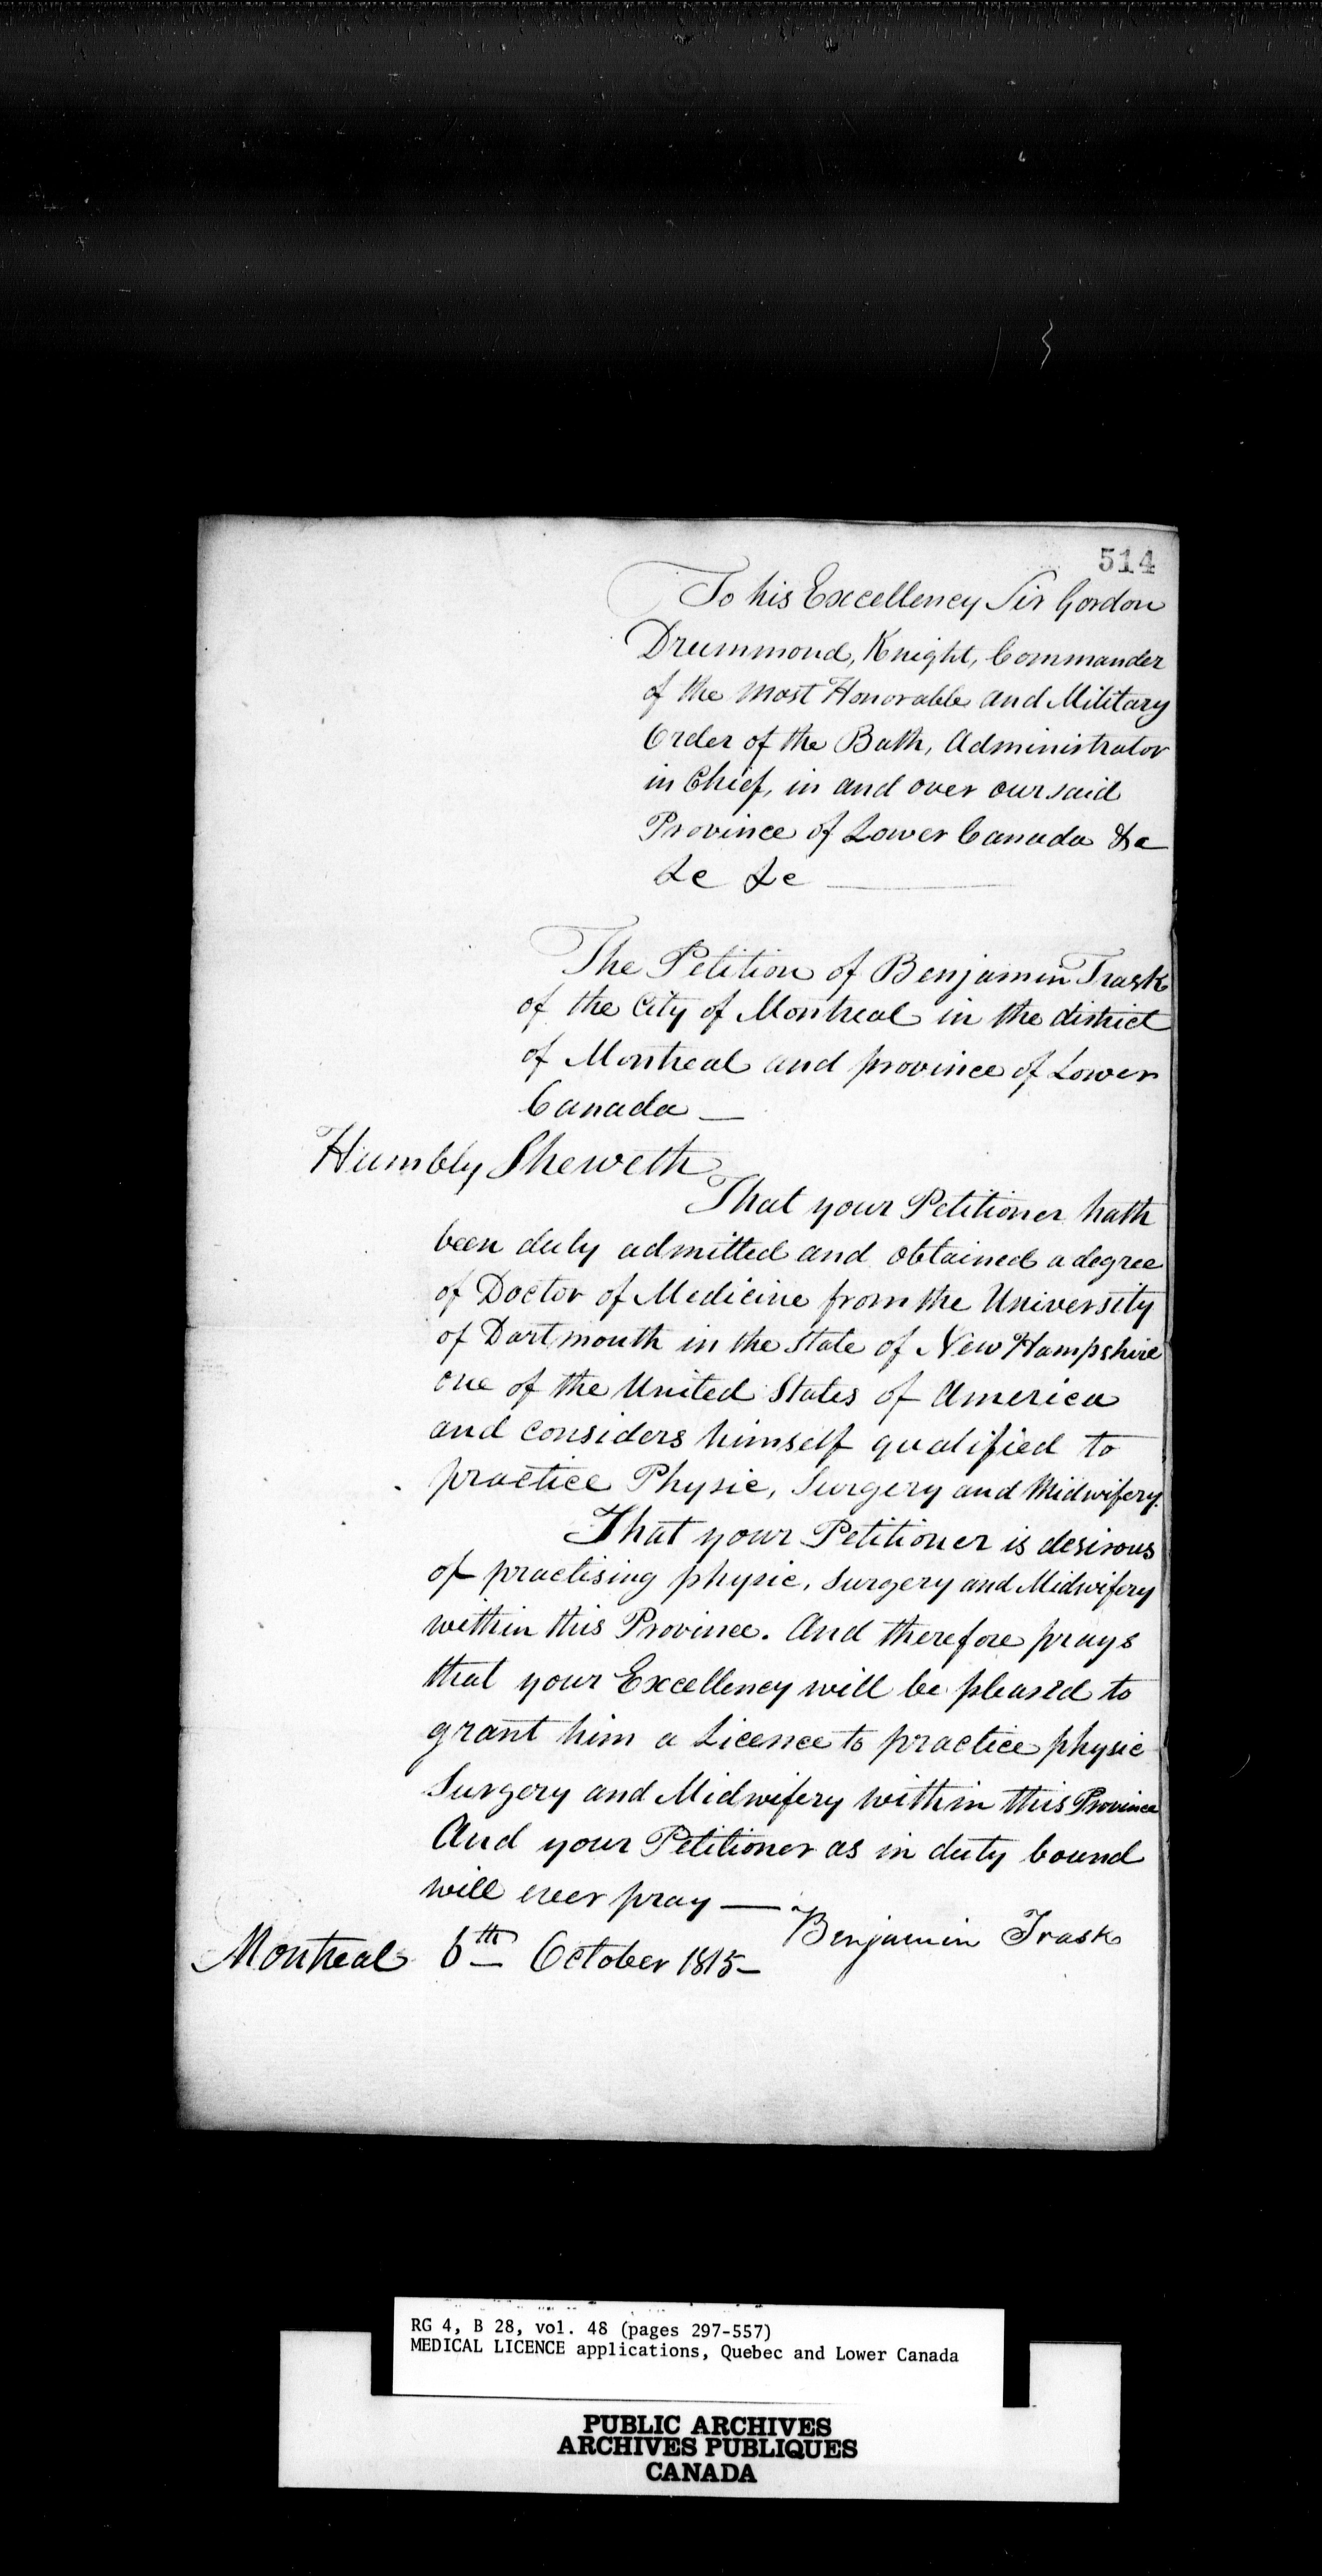 514
To his Excellency Sir Gordon
Drummond, Knight, Commander
of the most Honorable and Military
Order of the Bath, Administrator
in Chief, in and over our said
Province of Lower Canada &c
&c &c
The Petition of Benjamin Trask
of the City of Montreal in the district
of Montreal and province of Lower
Canada —
Humbly Sheweth
That your Petitioner hath
been duly admitted and obtained a degree
of Doctor of Medicine from the University
of Dartmouth in the State of New Hampshire
one of the United States of America
and considers himself qualified to
practice Physic, Surgery and Midwifery.
That your Petitioner is desirous
of practising physic, Surgery and Midwifery
within this Province. And therefore prays
that your Excellency will be pleased to
grant him a Licence to practice physic
Surgery and Midwifery within this Province
And your Petitioner as in duty bound
will ever pray —
Benjamin Trask
Montreal 6th October 1815 —
RG 4, B 28, vol. 48 (pages 297-557)
MEDICAL LICENCE applications, Quebec and Lower Canada
PUBLIC ARCHIVES
ARCHIVES PUBLIQUES
CANADA